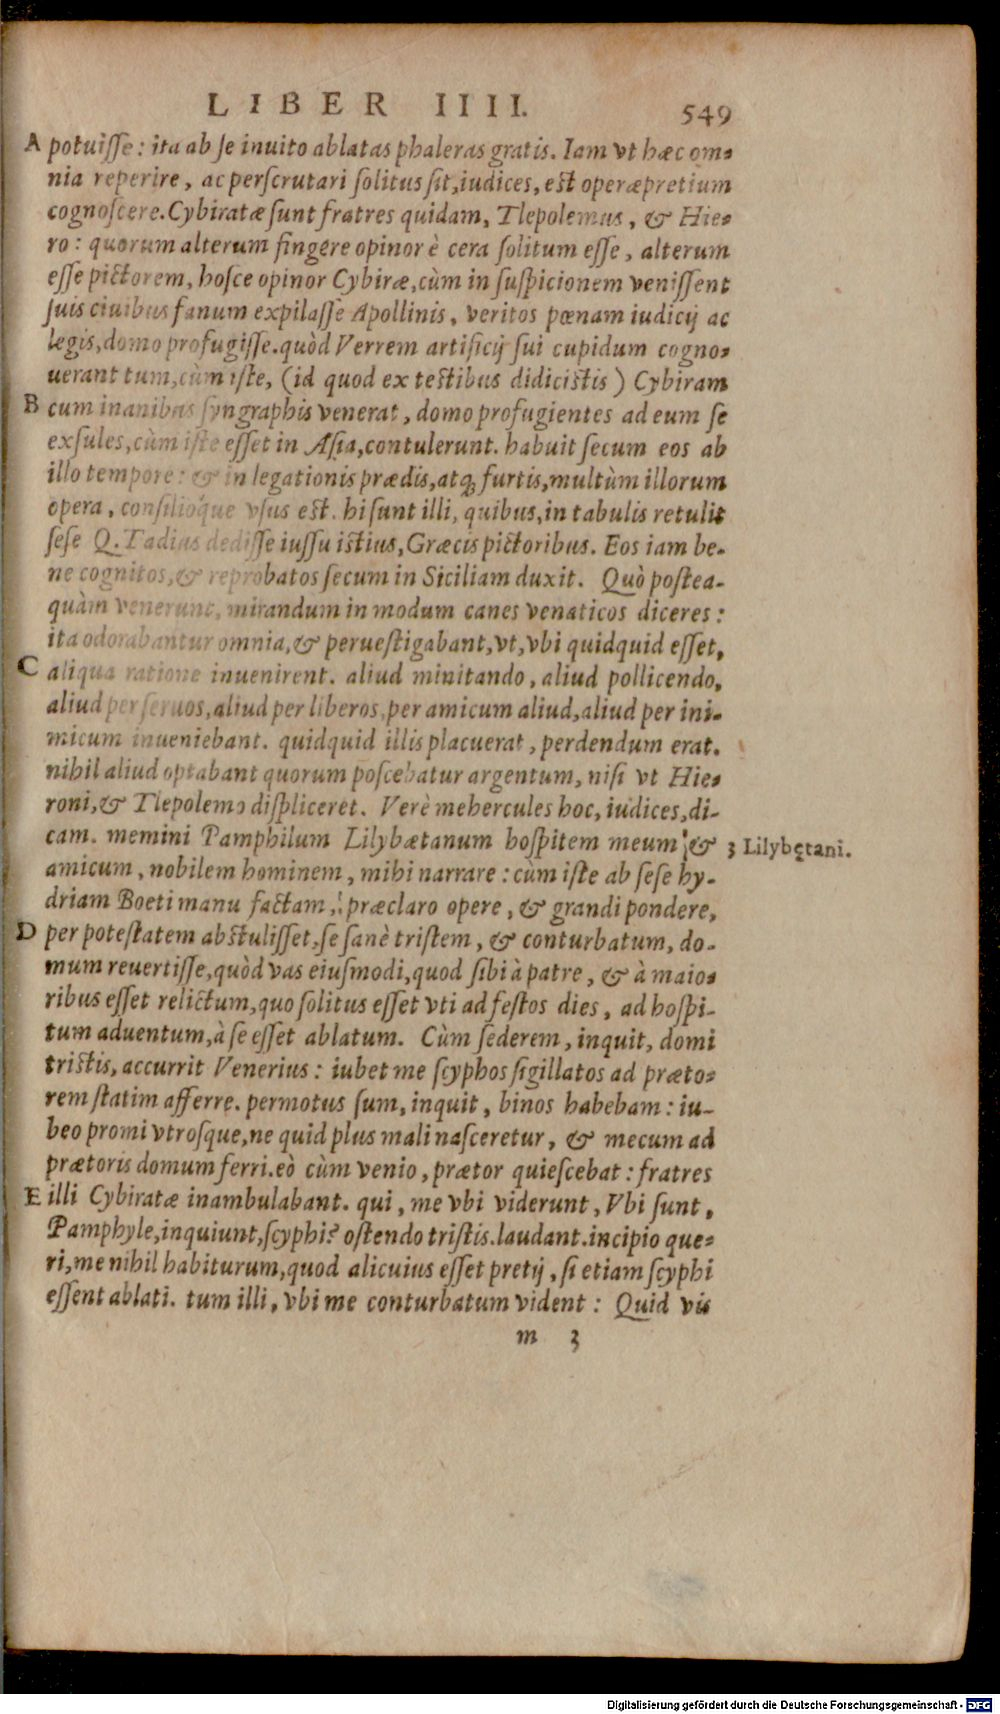 LIBER IIII. 549
A potuisse: ita ab se inuito ablatas phaleras gratis. Iam vt hæc om-
nia reperire, ac perscrutari solitus sit, iudices, est operæpretium
cognoscere. Cybiratæ sunt fratres quidam, Tlepolemus, & Hie-
ro: quorum alterum fingere opinor è cera solitum esse, alterum
esse pictorem, hosce opinor Cybiræ, cùm in suspicionem venissent
suis ciuibus fanum expilasse Apollinis, veritos pœnam iudicij ac
legis, domo profugisse. quòd Verrem artificij sui cupidum cogno-
uerant tum, cùm iste, (id quod ex testibus didicistis) Cybiram
B cum inanibus syngraphis venerat, domo profugientes ad eum se
exsules, cùm iste esset in Asia, contulerunt. habuit secum eos ab
illo tempore: & in legationis prædis, atq; furtis, multùm illorum
opera, consilioque vsus est. hi sunt illi, quibus, in tabulis retulit
sese Q. Tadius dedisse iussu istius, Græcis pictoribus. Eos iam be-
ne cognitos, & reprobatos secum in Siciliam duxit. Quò postea-
quàm venerunt, mirandum in modum canes venaticos diceres:
ita odorabantur omnia, & peruestigabant, vt, vbi quidquid esset,
C aliqua ratione inuenirent. aliud minitando, aliud pollicendo,
aliud per seruos, aliud per liberos, per amicum aliud, aliud per ini-
micum inueniebant. quidquid illis placuerat, perdendum erat.
nihil aliud optabant quorum poscebatur argentum, nisi vt Hie-
roni, & Tlepolemo displiceret. Verè mehercules hoc, iudices, di-
cam. memini Pamphilum Lilybætanum hospitem meum & 3 Lilybętani.
amicum, nobilem hominem, mihi narrare: cùm iste ab sese hy-
driam Boeti manu factam, præclaro opere, & grandi pondere,
D per potestatem abstulisset, se sanè tristem, & conturbatum, do-
mum reuertisse, quòd vas eiusmodi, quod sibi à patre, & à maio-
ribus esset relictum, quo solitus esset vti ad festos dies, ad hospi-
tum aduentum, à se esset ablatum. Cùm sederem, inquit, domi
tristis, accurrit Venerius: iubet me scyphos sigillatos ad præto-
rem statim afferre. permotus sum, inquit, binos habebam: iu-
beo promi vtrosque, ne quid plus mali nasceretur, & mecum ad
prætoris domum ferri. eò cùm venio, prætor quiescebat: fratres
E illi Cybiratæ inambulabant. qui, me vbi viderunt, Vbi sunt,
Pamphyle, inquiunt, scyphi? ostendo tristis. laudant. incipio que-
ri, me nihil habiturum, quod alicuius esset pretij, si etiam scyphi
essent ablati. tum illi, vbi me conturbatum vident: Quid vis
m 3
Digitalisierung gefördert durch die Deutsche Forschungsgemeinschaft - DFG